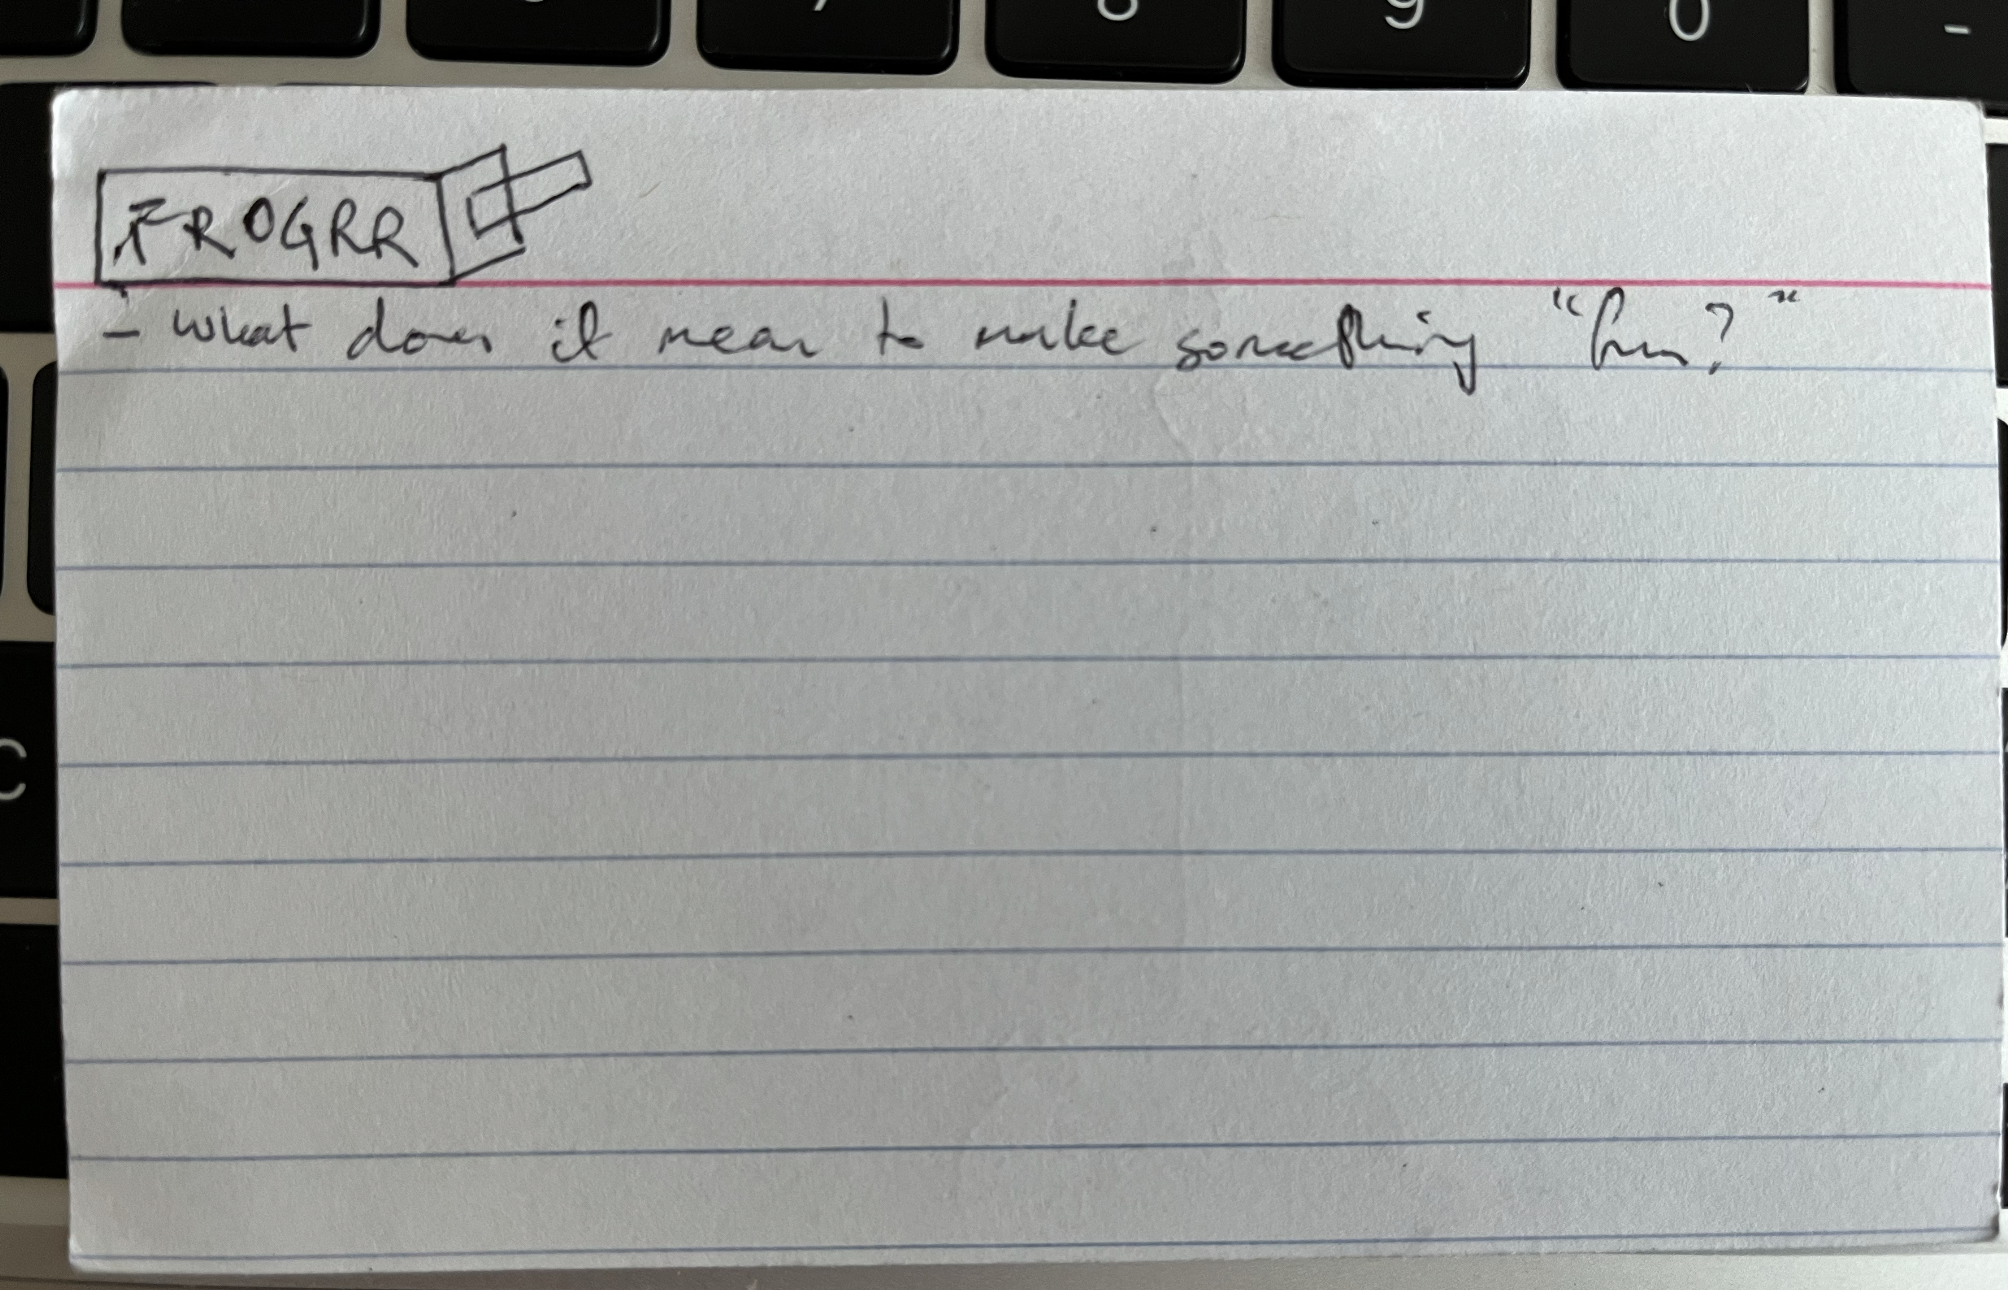 7 8 9 0 -
FROGRR
- what does it mean to make something "fun?"
C